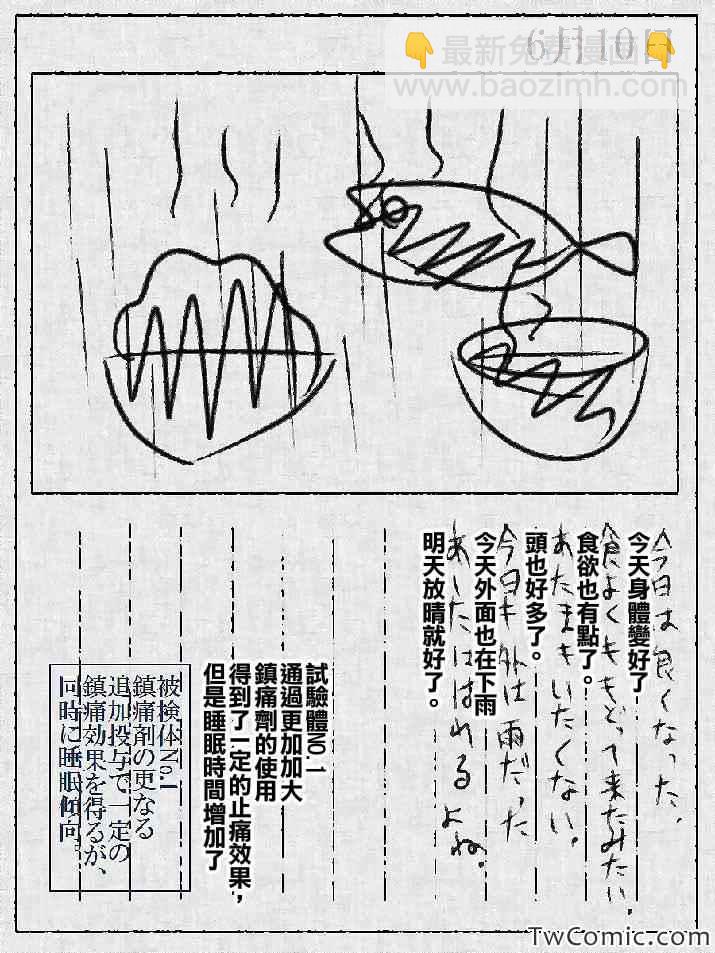 6月10日
👇最新免费漫画在👇
www.baozimh.com
今日は良くなった。
食よくももどって来たみたい。
あたまもいたくない。
今日も外は雨だった
あしたははれるよね。
今天身體變好了
食欲也有點了。
頭也好多了。
今天外面也在下雨
明天放晴就好了。
試驗體NO.1
通過更加加大
鎮痛劑的使用
得到了一定的止痛效果，
但是睡眠時間增加了
被検体No.1
鎮痛剤の更なる
追加投与で一定の
鎮痛効果を得るが、
同時に睡眠傾向。
TwComic.com